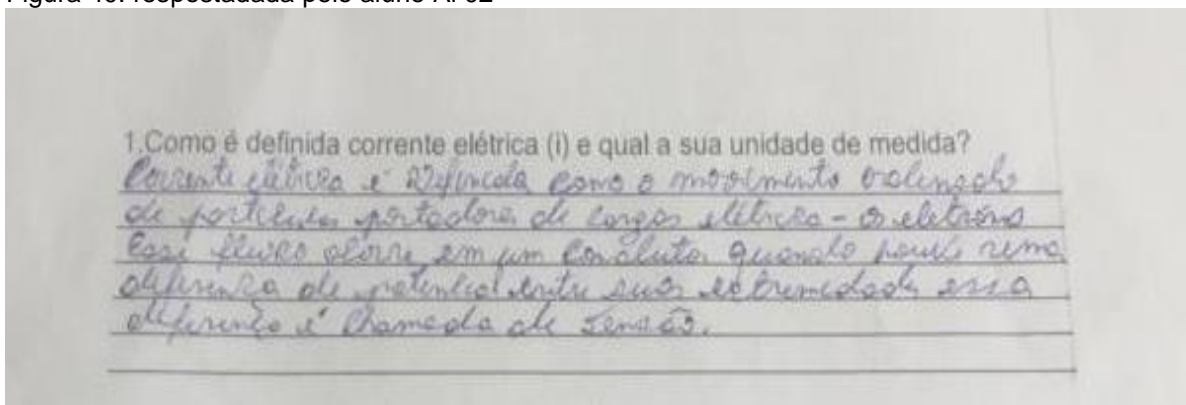 1.Como é definida corrente elétrica (i) e qual a sua unidade de medida?
Corrente elétrica é definida como o movimento ordenado
de partículas portadora de cargas elétricas - os elétrons
Esse fluxo ocorre em um condutor quando uma
diferença de potencial entre suas extremidades essa
diferença é chamada de tensão.